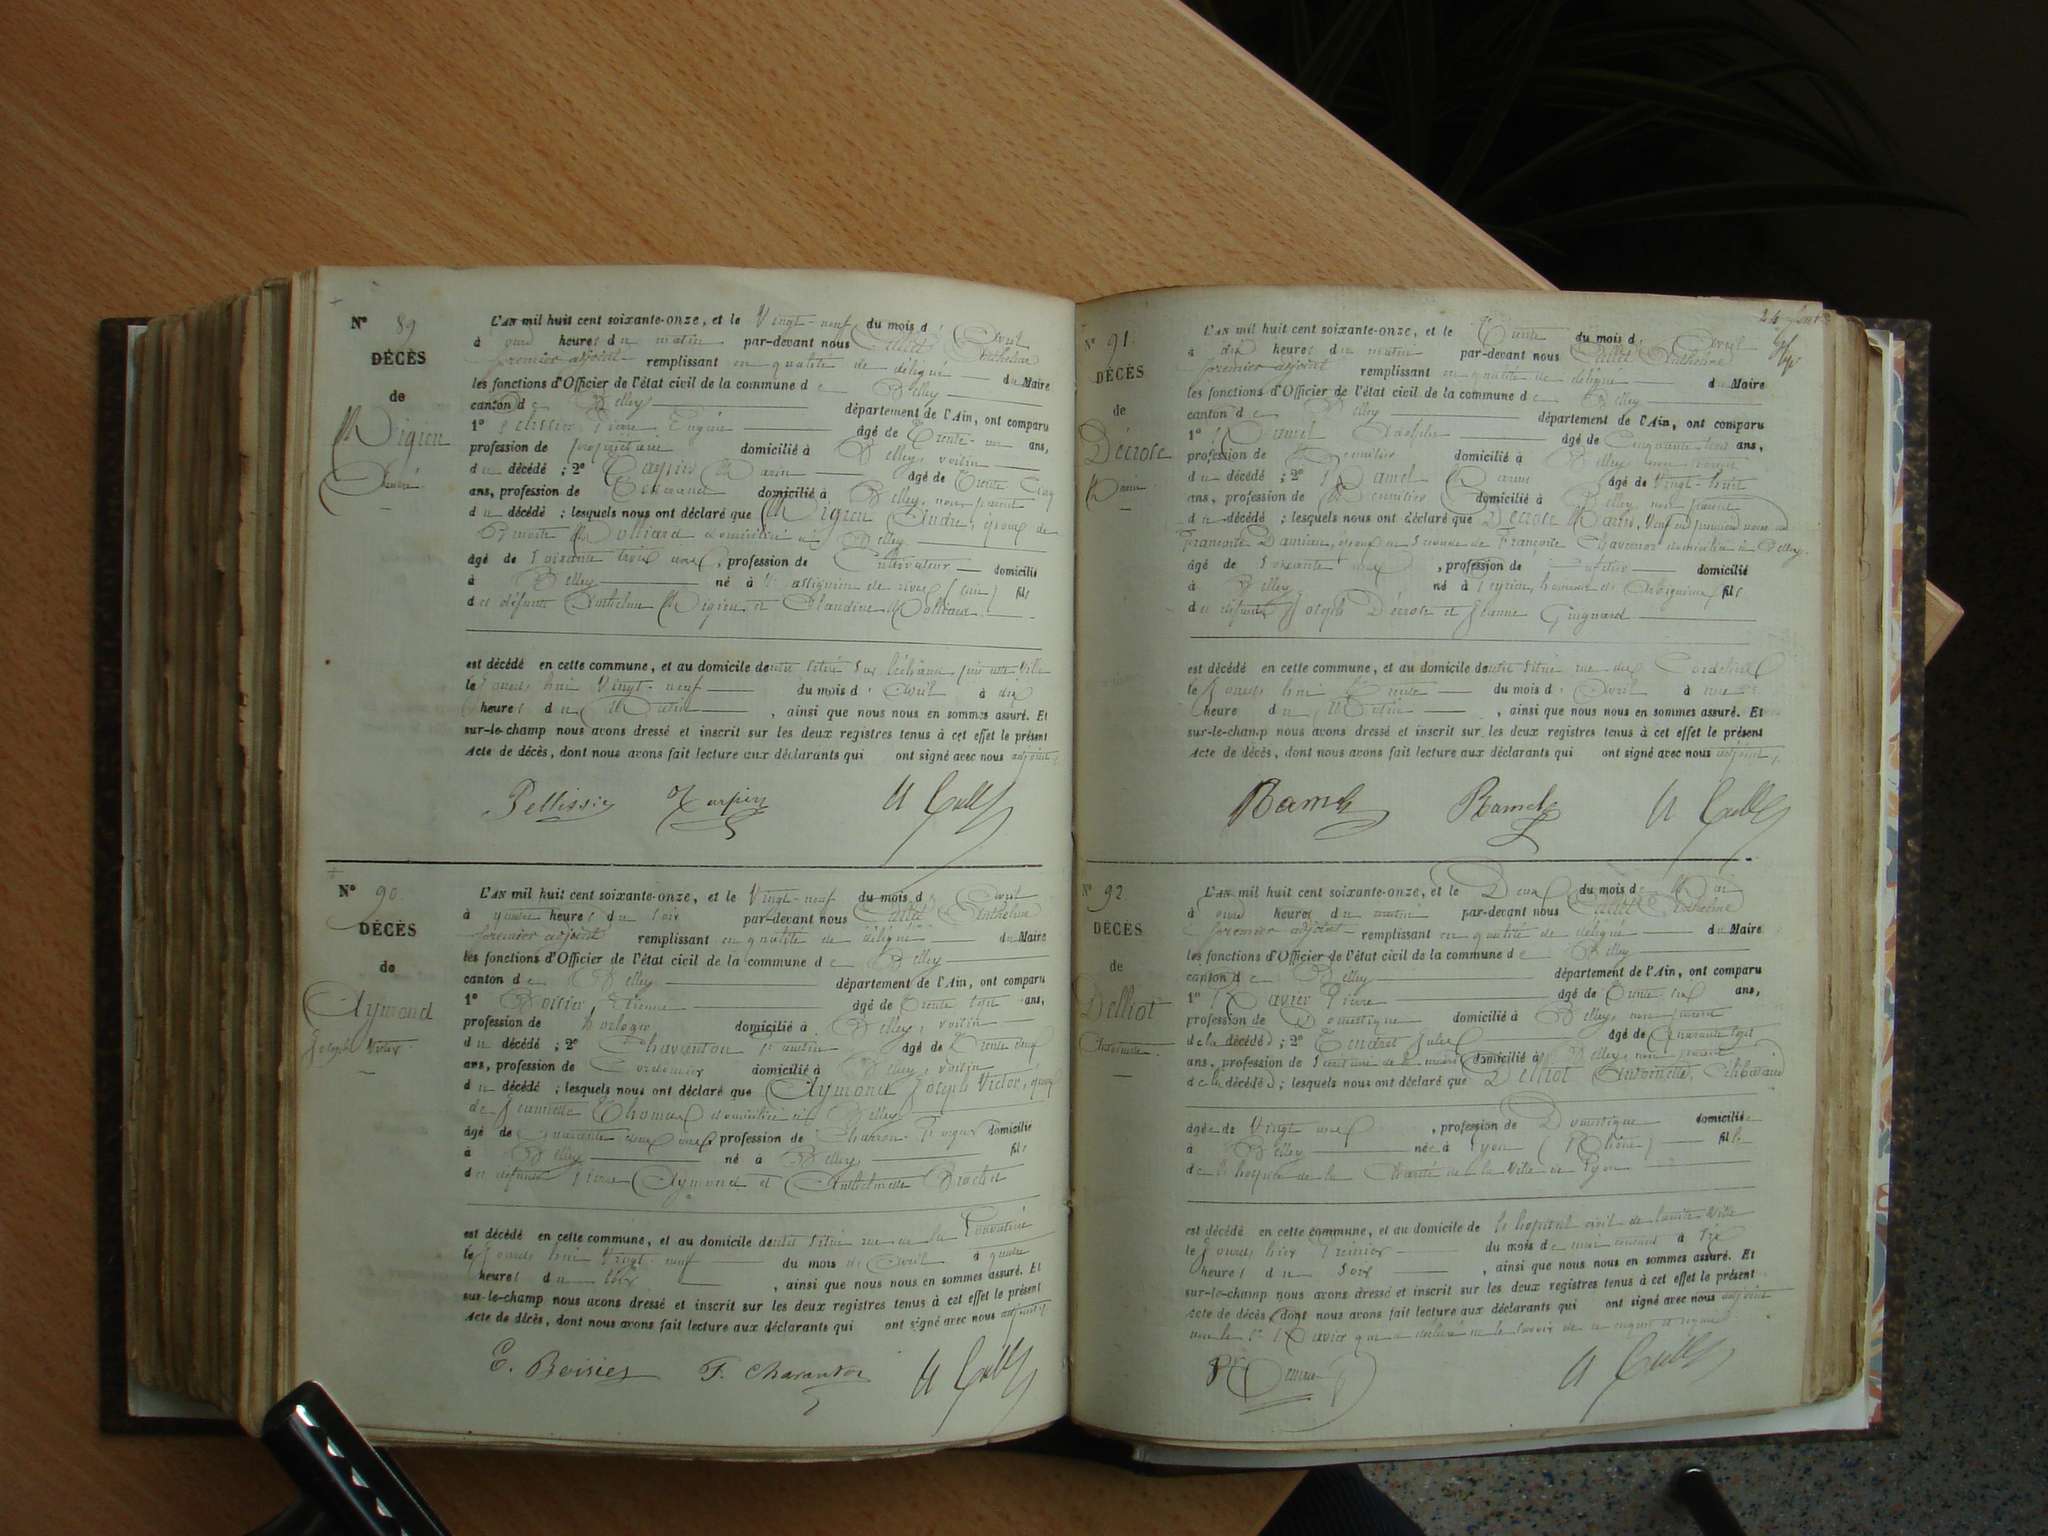 N° 89
DÉCÈS
de
Migieu
André
L'AN mil huit cent soixante-onze, et le Vingt-neuf du mois d' Avril
à onze heures du matin par-devant nous Caillet Anthelme
premier adjoint remplissant en qualité de délégué du Maire
les fonctions d'Officier de l'état civil de la commune de Belley
canton de Belley département de l'Ain, ont comparu
1° Pélissier Pierre Eugène âgé de Trente-un ans,
profession de propriétaire domicilié à Belley, voisin
du décédé ; 2° Marin âgé de Trente cinq
ans, profession de domicilié à Belley, non parent
du décédé ; lesquels nous ont déclaré que Migieu André, époux de
Molliard domicilié à Belley
âgé de Soixante trois ans, profession de Cultivateur domicilié
à Belley né à Massignieu de rives (Ain) fils
des défunts Anthelme Migieu et Claudine Molliard
est décédé en cette commune, et au domicile de
le Jourd'hui Vingt-neuf du mois d' Avril à dix
heures du Matin , ainsi que nous nous en sommes assuré. Et
sur-le-champ nous avons dressé et inscrit sur les deux registres tenus à cet effet le présent
Acte de décès, dont nous avons fait lecture aux déclarants qui ont signé avec nous adjoint.
N° 90
DÉCÈS
de
Aymond
Joseph Victor
L'AN mil huit cent soixante-onze, et le Vingt-neuf du mois d' Avril
à quatre heures du soir par-devant nous Caillet Anthelme
premier adjoint remplissant en qualité de délégué du Maire
les fonctions d'Officier de l'état civil de la commune de Belley
canton de Belley département de l'Ain, ont comparu
1° Etienne âgé de Trente sept ans,
profession de horloger domicilié à Belley, voisin
du décédé ; 2° Charanton âgé de Trente
ans, profession de Cordonnier domicilié à Belley, voisin
du décédé ; lesquels nous ont déclaré que Aymond Joseph Victor, époux
de Jeannette Thomas domicilié à Belley
âgé de Quarante deux ans, profession de domicilié
à Belley né à Belley fils
des défunts Pierre Aymond et Anthelmette
est décédé en cette commune, et au domicile de
le Jourd'hui Vingt-neuf du mois de Avril à quatre
heures du soir , ainsi que nous nous en sommes assuré. Et
sur-le-champ nous avons dressé et inscrit sur les deux registres tenus à cet effet le présent
Acte de décès, dont nous avons fait lecture aux déclarants qui ont signé avec nous adjoint.
F. Charanton
N° 91
DÉCÈS
de
Décrose
Marin
L'AN mil huit cent soixante-onze, et le Trente du mois d' Avril
à dix heures du matin par-devant nous Caillet Anthelme
premier adjoint remplissant en qualité de délégué du Maire
les fonctions d'Officier de l'état civil de la commune de Belley
canton de Belley département de l'Ain, ont comparu
1° Ramel âgé de Cinquante trois ans,
profession de Menuisier domicilié à Belley non parent
du décédé ; 2° Ramel âgé de Vingt-huit
ans, profession de Menuisier domicilié à Belley non parent
du décédé ; lesquels nous ont déclaré que Décrose Marin, Veuf en premières noces de
Françoise Damian, époux en secondes de Françoise domicilié à Belley
âgé de Soixante ans , profession de domicilié
à Belley né à Peyrieu, hameau de fils
des défunts Joseph Décrose et Jeanne Guignard
est décédé en cette commune, et au domicile de situé rue des Cordeliers
le Jourd'hui Trente du mois d' Avril à une
heure du Matin , ainsi que nous nous en sommes assuré. Et
sur-le-champ nous avons dressé et inscrit sur les deux registres tenus à cet effet le présent
Acte de décès, dont nous avons fait lecture aux déclarants qui ont signé avec nous adjoint.
Ramel Ramel
N° 92
DÉCÈS
de
Delliot
Antoinette
L'AN mil huit cent soixante-onze, et le Deux du mois de Mai
à onze heures du matin par-devant nous Caillet Anthelme
premier adjoint remplissant en qualité de délégué du Maire
les fonctions d'Officier de l'état civil de la commune de Belley
canton de Belley département de l'Ain, ont comparu
1° Pierre âgé de Trente six ans,
profession de Domestique domicilié à Belley, non parent
de la décédée ; 2° Jules âgé de Quarante sept
ans, profession de Secrétaire de la mairie domicilié à Belley, non parent
de la décédée ; lesquels nous ont déclaré que Delliot Antoinette, célibataire
âgée de Vingt ans , profession de Domestique domiciliée
à Belley née à Lyon (Rhône) fille
de l'hospice de la Charité de la Ville de Lyon
est décédé en cette commune, et au domicile de l'hôpital civil de la Ville
le Jour d'hier Premier du mois de mai courant à six
heures du soir , ainsi que nous nous en sommes assuré. Et
sur-le-champ nous avons dressé et inscrit sur les deux registres tenus à cet effet le présent
Acte de décès, dont nous avons fait lecture aux déclarants qui ont signé avec nous adjoint